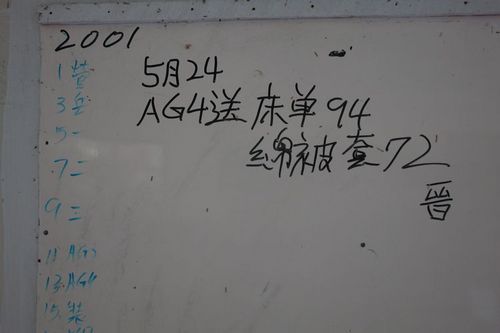 2001
5月24
AG4送床单94
綿被套72
晋
1营
3兵
5一
7二
9三
11.AG2
13.AG4
15.装